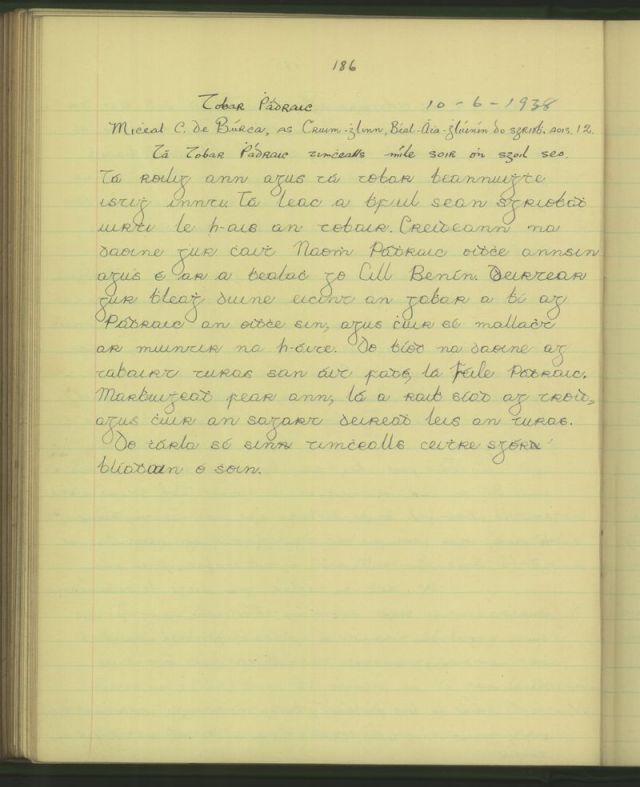 186
Tobar Pádraic 10-6-1938
Micéal C. de Búrca, as Cruim-ġlinn, Béal-Áṫa-ġluinín do sgríoḃ. aois. 12.
Tá Tobar Pádraic timċeall míle soir ón sgoil seo.
Tá roilig ann agus tá tobar beannuiġte
istiġ innti. Tá leac a ḃfuil sean sgríoḃaḋ
uirti le h-ais an tobair. Creideann na
daoine gur ċaiṫ Naoṁ Pádraic oiḋċe annsin
agus é ar a ḃealaċ go Cill Benín. Deirtear
gur ḃleaġ duine éicint an gabar a ḃí ag
Pádraic an oiḋċe sin, agus ċuir sé mallaċt
ar muintir na h-áite. Do ḃíoḋ na daoine ag
taḃairt turas san áit fadó, lá Féile Pádraic.
Marḃuiġeaḋ fear ann, lá a raiḃ siad ag troid,
agus ċuir an sagart deireaḋ leis an turas.
Do ṫárla sé sinn timċeall ceiṫre sgór
bliadan ó soin.